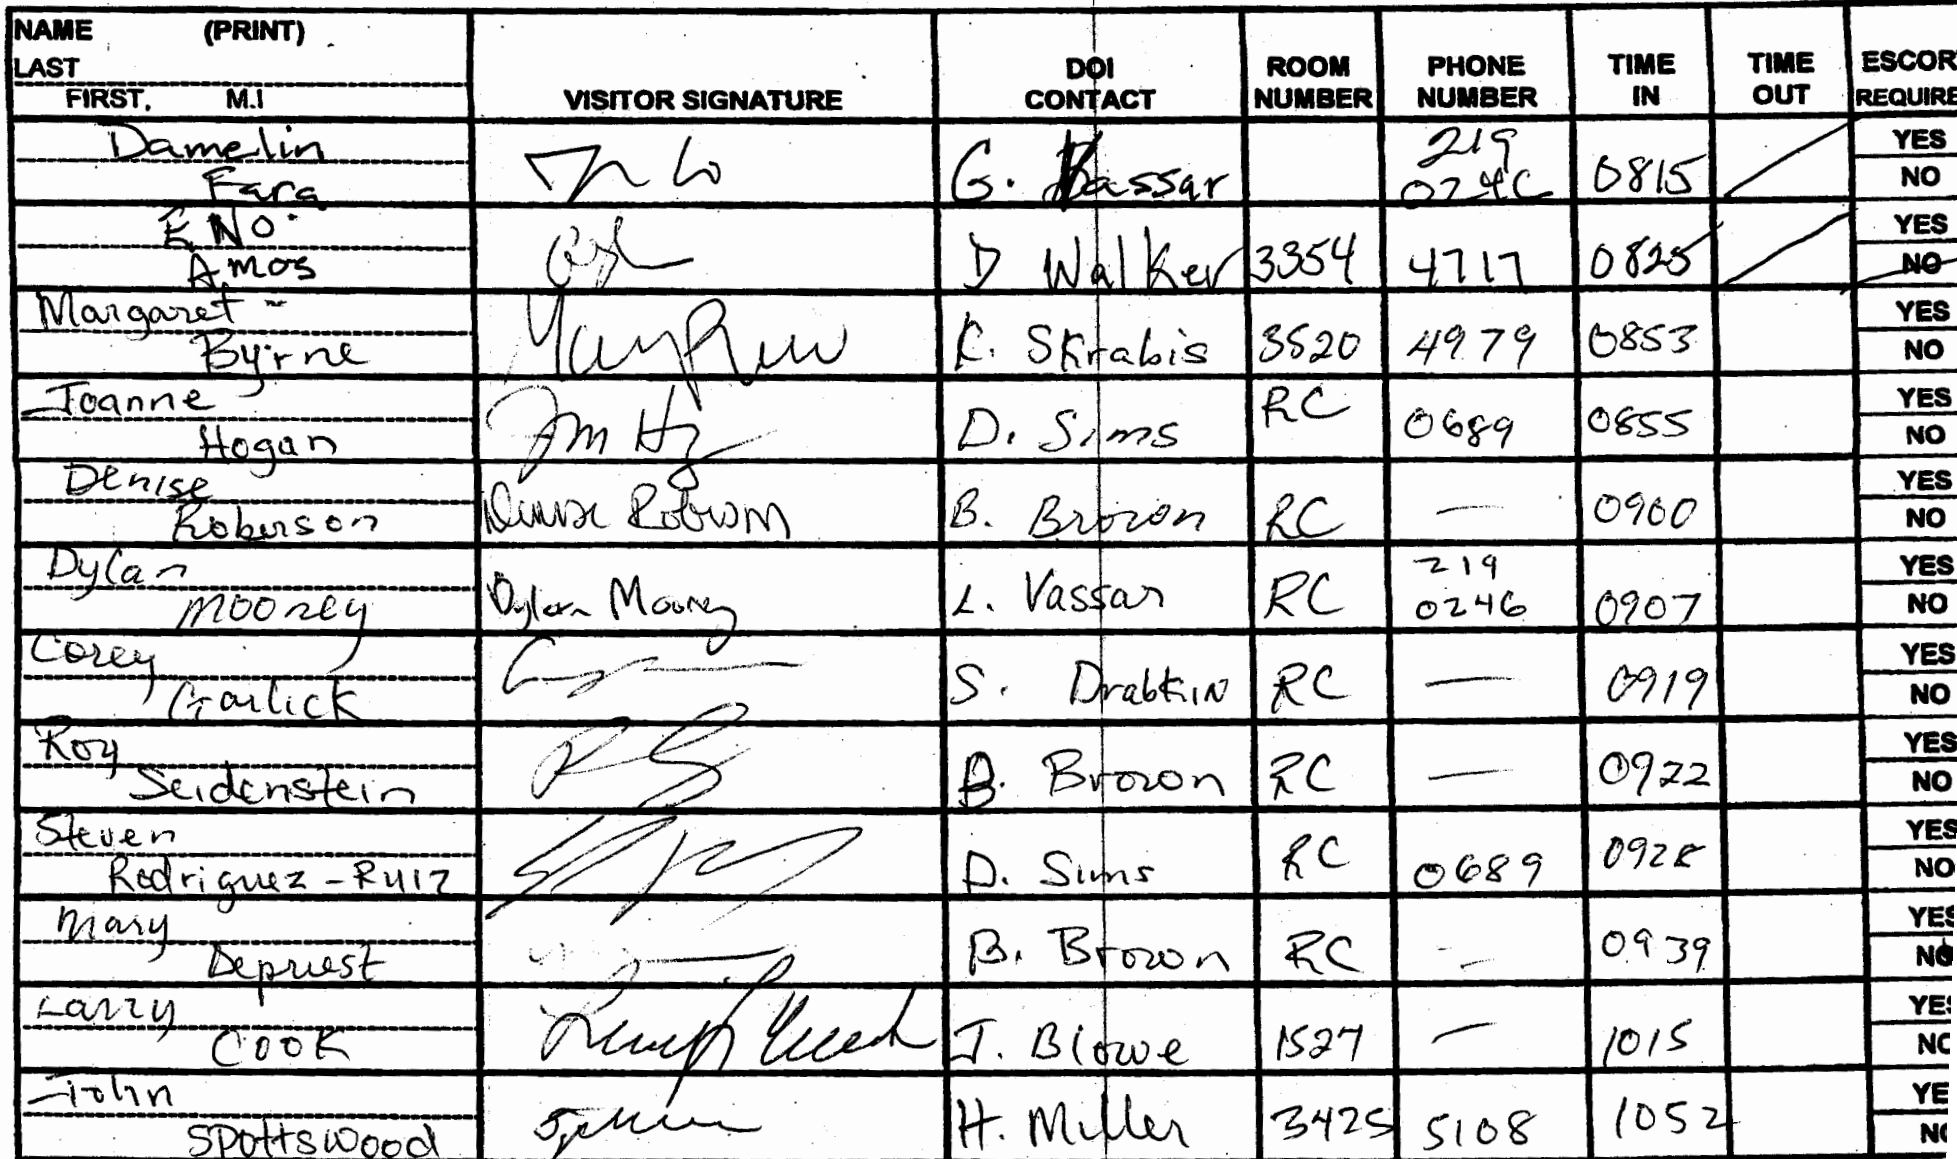 NAME (PRINT)
LAST
FIRST, M.I
VISITOR SIGNATURE
DOI
CONTACT
ROOM
NUMBER
PHONE
NUMBER
TIME
IN
TIME
OUT
ESCOR
REQUIRE
Damelin
Fara
G. Vassar
219
0815
YES
NO
ENO
Amos
D Walker
3354
4717
0825
YES
NO
Margaret
Byrne
K. Skrabis
3520
4979
0853
YES
NO
Joanne
Hogan
D. Sims
RC
0689
0855
YES
NO
Denise
Roberson
Denise Roberson
B. Brown
RC
—
0900
YES
NO
Dylan
Mooney
Dylan Mooney
L. Vassar
RC
219
0246
0907
YES
NO
Corey
Garlick
S. Drabkin
RC
—
0919
YES
NO
Roy
Seidenstein
B. Brown
RC
—
0922
YES
NO
Steven
Rodriguez-Ruiz
D. Sims
RC
0689
0928
YES
NO
Mary
Depriest
B. Brown
RC
—
0939
YES
NO
Larry
Cook
J. Blowe
1527
—
1015
YES
NO
John
Spottswood
H. Miller
3425
5108
1052
YE
NO